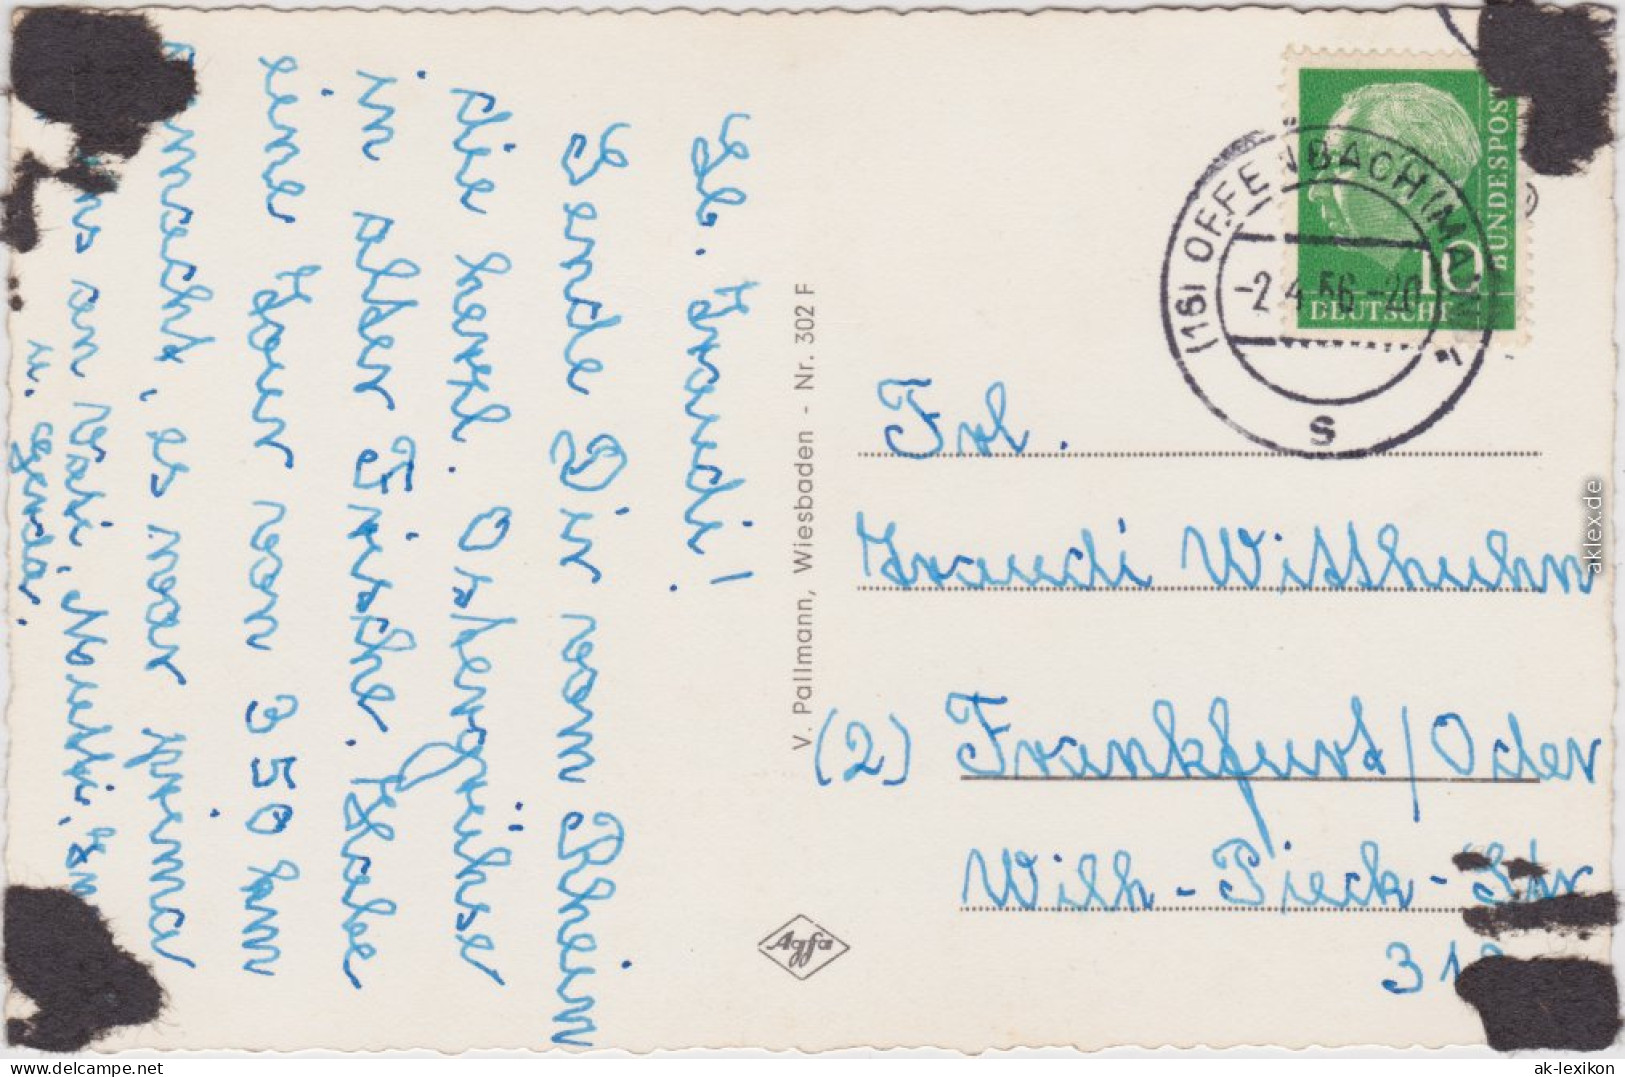 Lb. Traudi!
Sende Dir vom Rhein
die herzl. Ostergrüsse
in alter Frische. Habe
eine Tour von 350 km
gemacht, es war prima
uns an Vati, Mutti,
u. Gerda.
V. Pallmann, Wiesbaden - Nr. 302 F
Agfa
DEUTSCHE
BUNDESPOST
10
(16) OFFENBACH (MAIN) 1
-2.4.56-20
s
Frl.
Traudi Witthuhn
(2) Frankfurt/Oder
Wilh-Pieck-Str
aklex.de
www.delcampe.net
ak-lexikon